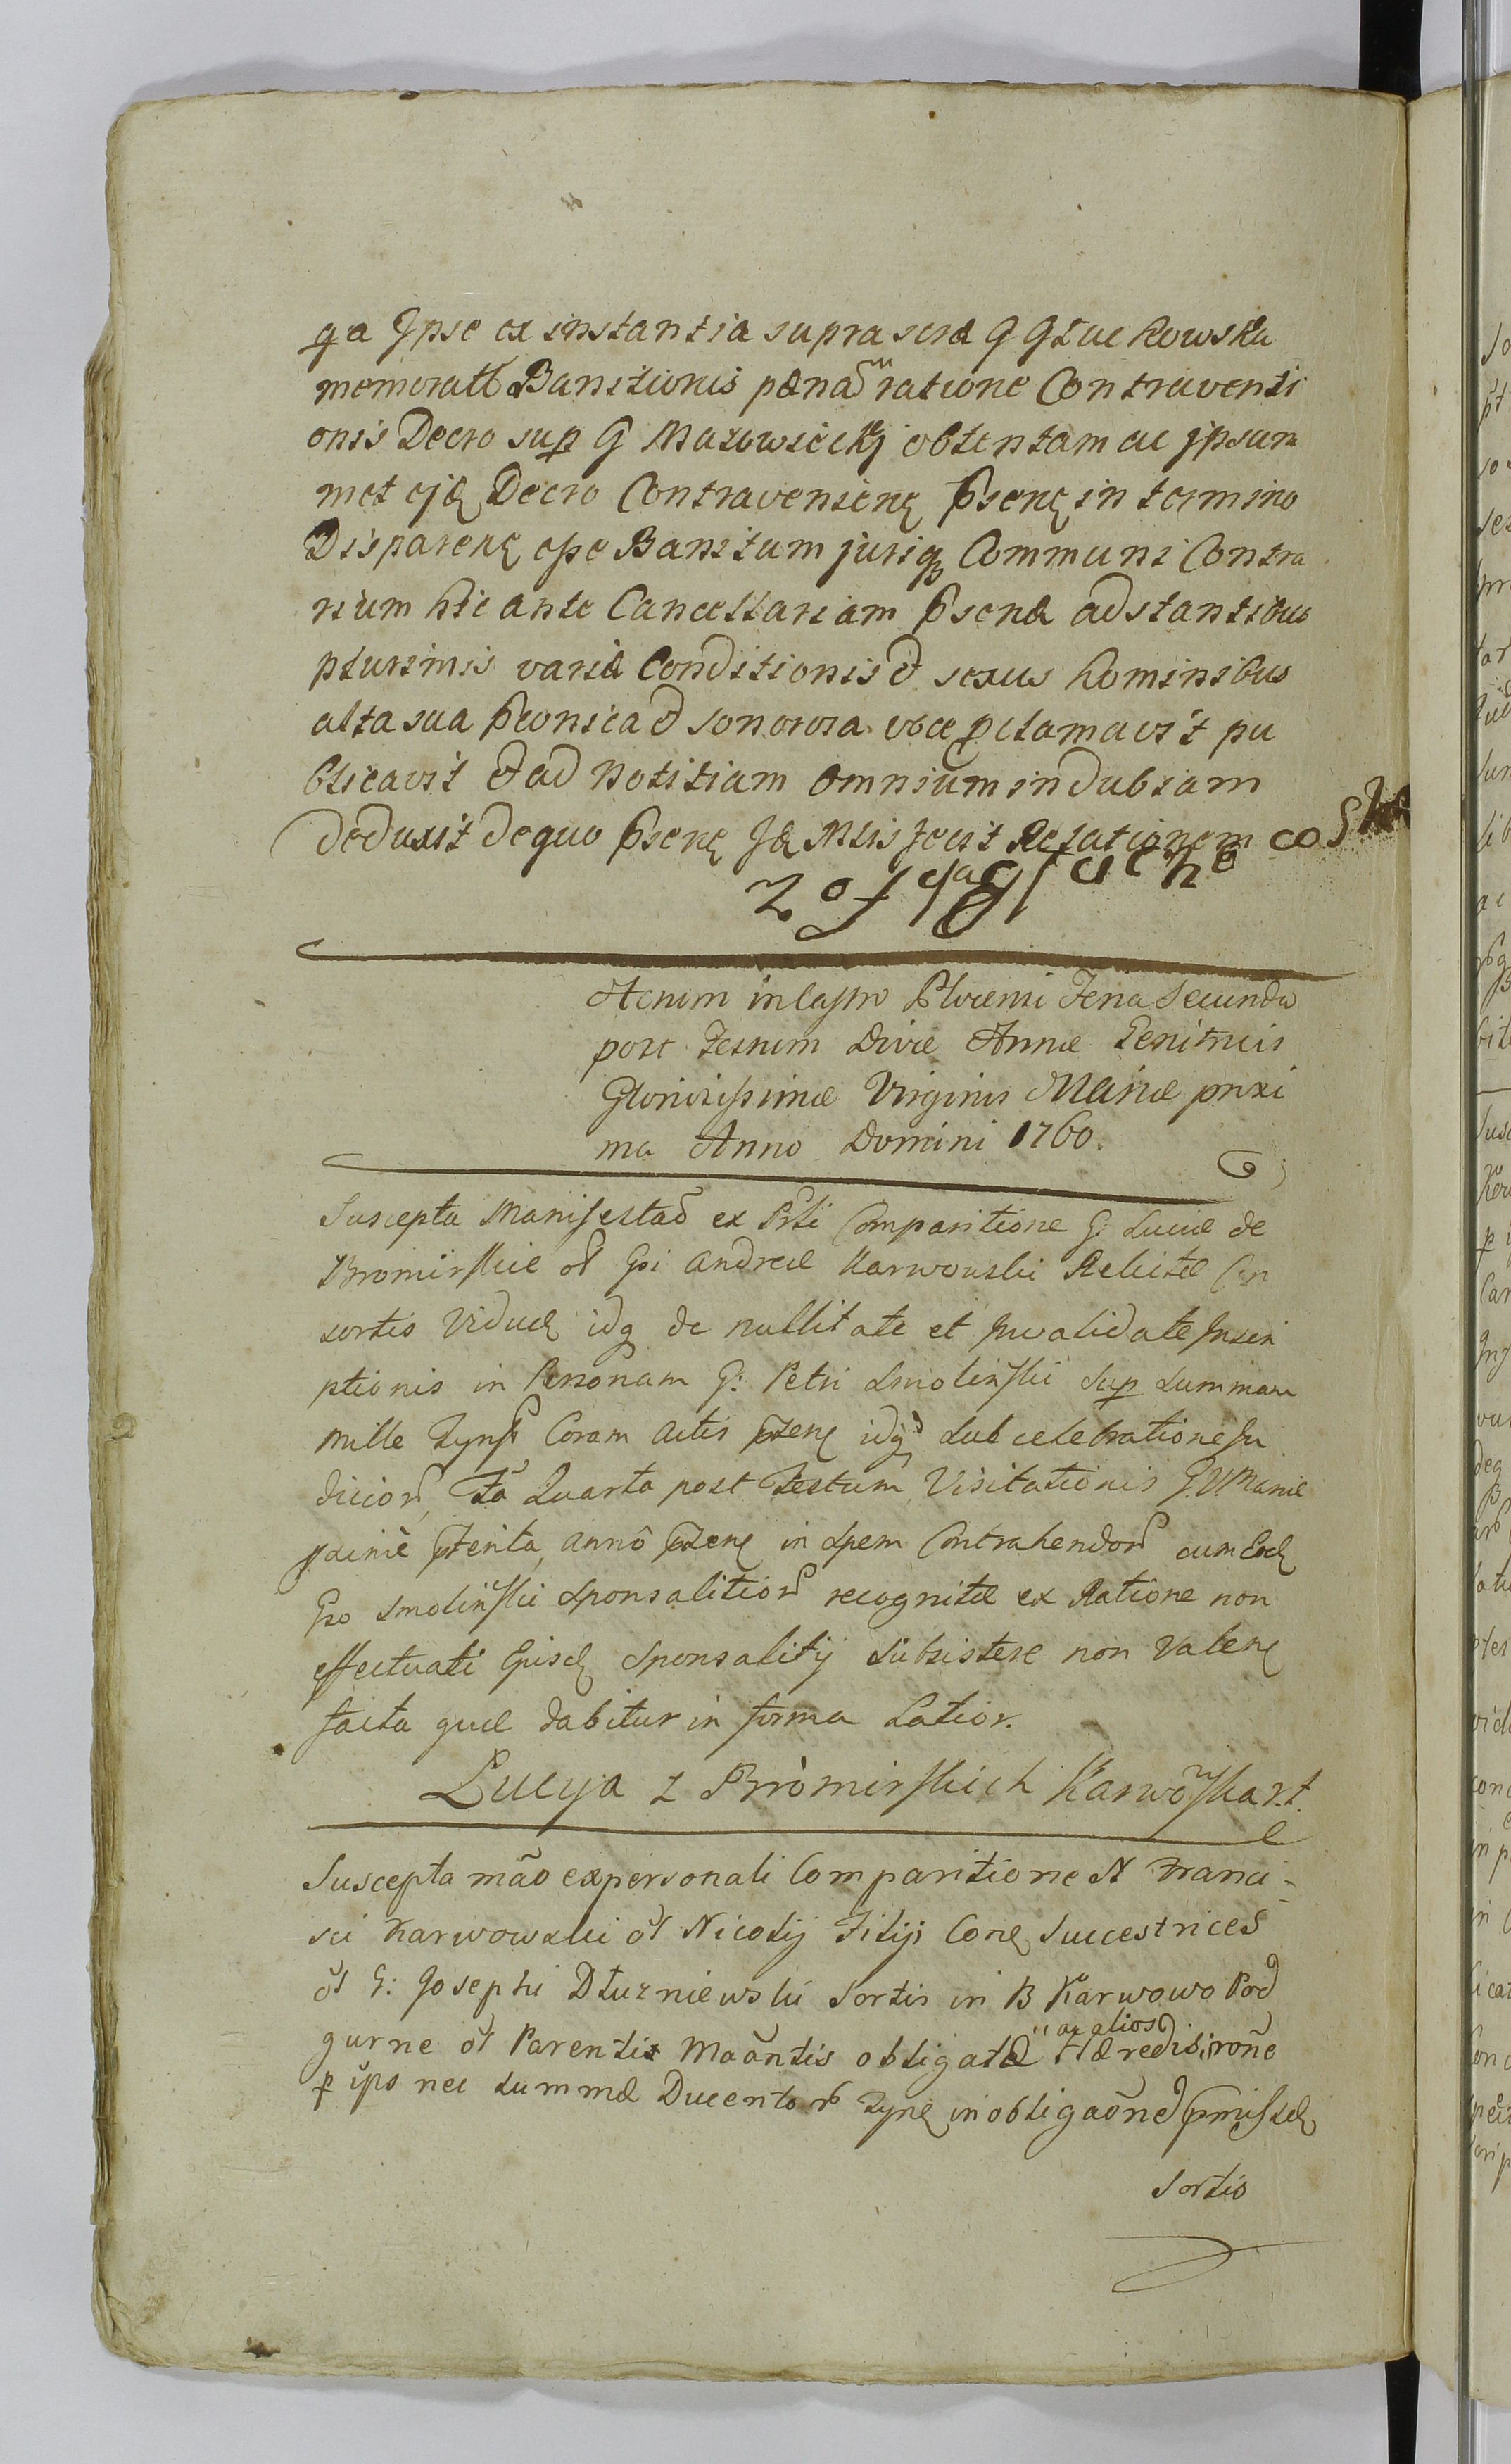 qa Ipse ex instantia suprascræ G Głuchowska
memoratt Bannitionis pænam ratione Contraventi
onis Decro sup G Mazowieckj obtentam ac jpsum
met ejd Decro Contravenien psene in termino
Disparen esse Banitum jurique Communi Contra
rium hic ante Cancellariam psens adstantibus
plurimis variæ Conditionis et sexus hominibus
alta sua præconica et sonorosa voce pclamavit pu
blicavit et ad Notitiam omnium indubiam
deduxit de quo psene Id Mlis fecit Relationem
Actum in Castro Plocensi Feria Secunda
post Festum Divæ Annæ Genitricis
Gloriosissimæ Virginis Mariæ proxi
ma Anno Domini 1760.
Suscepta Manifestao ex Prli Comparitione G: Luciæ de
Bromirskie ol Gsi Andreæ Karwowski Relictæ Con
sortis Viduæ idq de nullitate et Invaliditate Inscri
ptionis in Personam G: Petri Smolinski Sup Summam
Mille Zynp Coram Actis psene idq sub celebratione Ju
dicior Fa Quarta post Festum Visitationis G. V Mariæ
pxime pterita, anno psene in Spem Contrahendor cum Eod
Gso Smolinski Sponsalitior recognitæ ex Ratione non
effectuati Ejusd Sponsalitij Subsistere non Valen
facta quæ dabitur in forma Latior.
Lucya z Bromirskich Karwoska r.t.
Suscepta mao ex personali Comparitione N Franci-
sci Karwowski ol Nicolij Filij Cone Succestrices
ol G: Josephi Dłuzniewski Sortis in B Karwowo Pod
gurne ol Parentis Maantis obligatæ " ac alios Hæredis, rone
p ipso nec Summæ Ducentor Zyne in obligaone pmissæ
Sortis